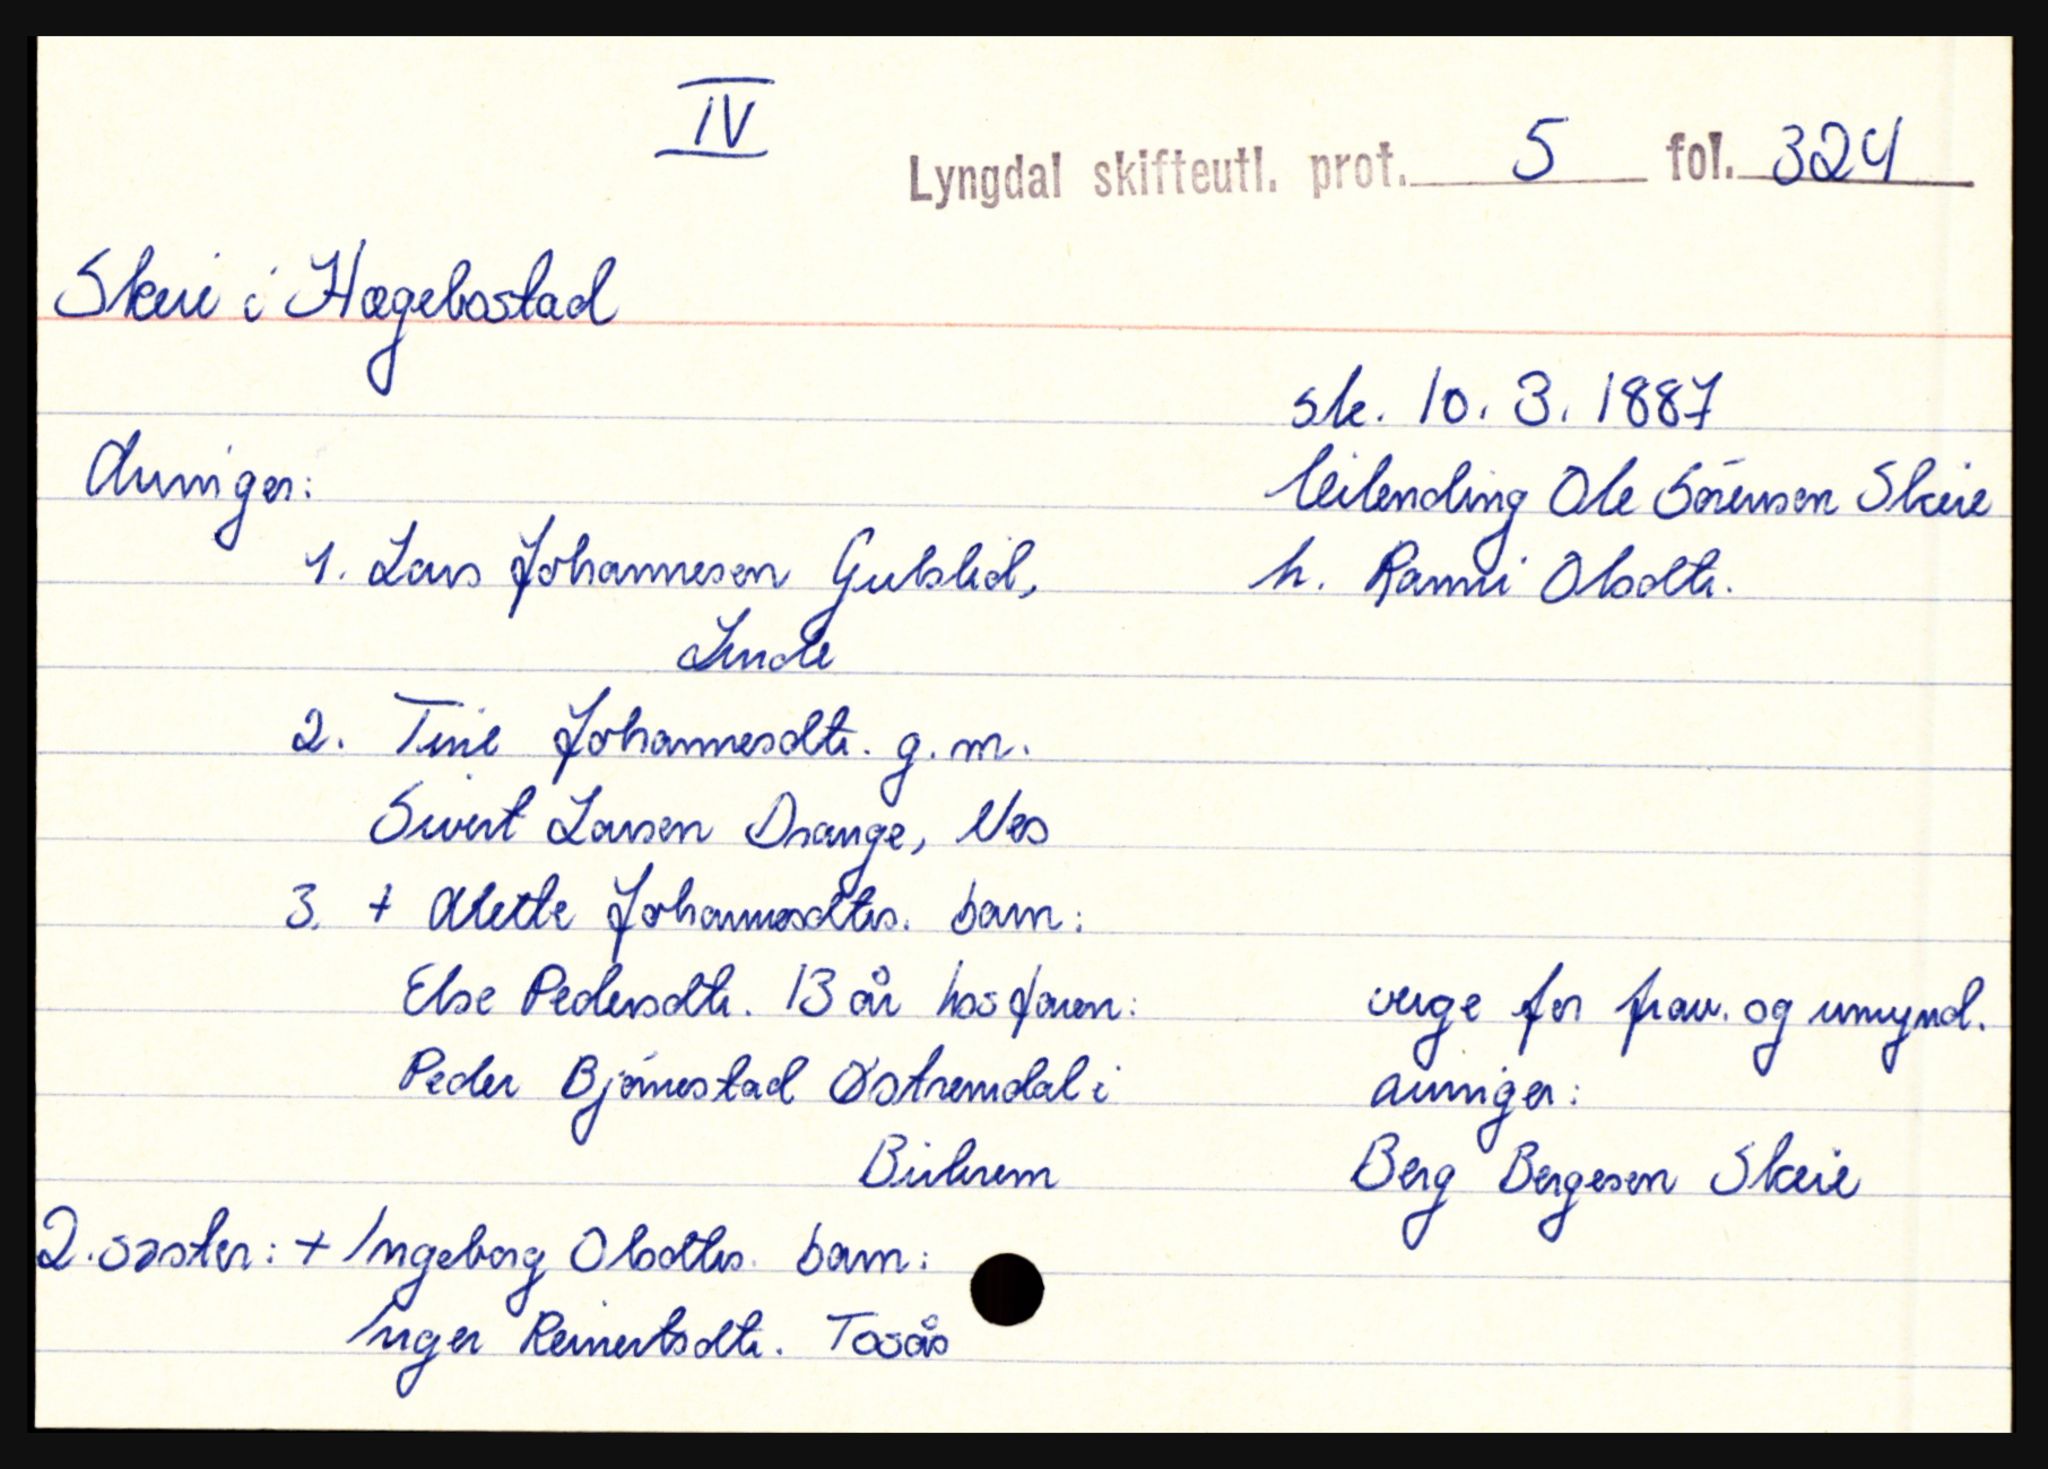 IV
Lyngdal skifteutl. prot. 5 fol. 324
Skeie i Hægebostad
sk. 10. 3. 1887
Arvinger:
leilending Ole Sørensen Skeie
1. Lars Johannesen Gulslid,
h. Ramni Olsdtr.
Linde
2. Tine Johannesdtr. g. m.
Sivert Larsen Drange, Nes
3. + Alette Johannesdtrs. barn:
Else Pedersdtr. 13 år hos faren:
verge for frav. og umynd.
Peder Bjørnestad Østremdal i
arvinger:
Birkrem
Berg Bergesen Skeie
2. søster: + Ingeborg Olsdtrs. barn:
Inger Reinertsdtr. Tosås